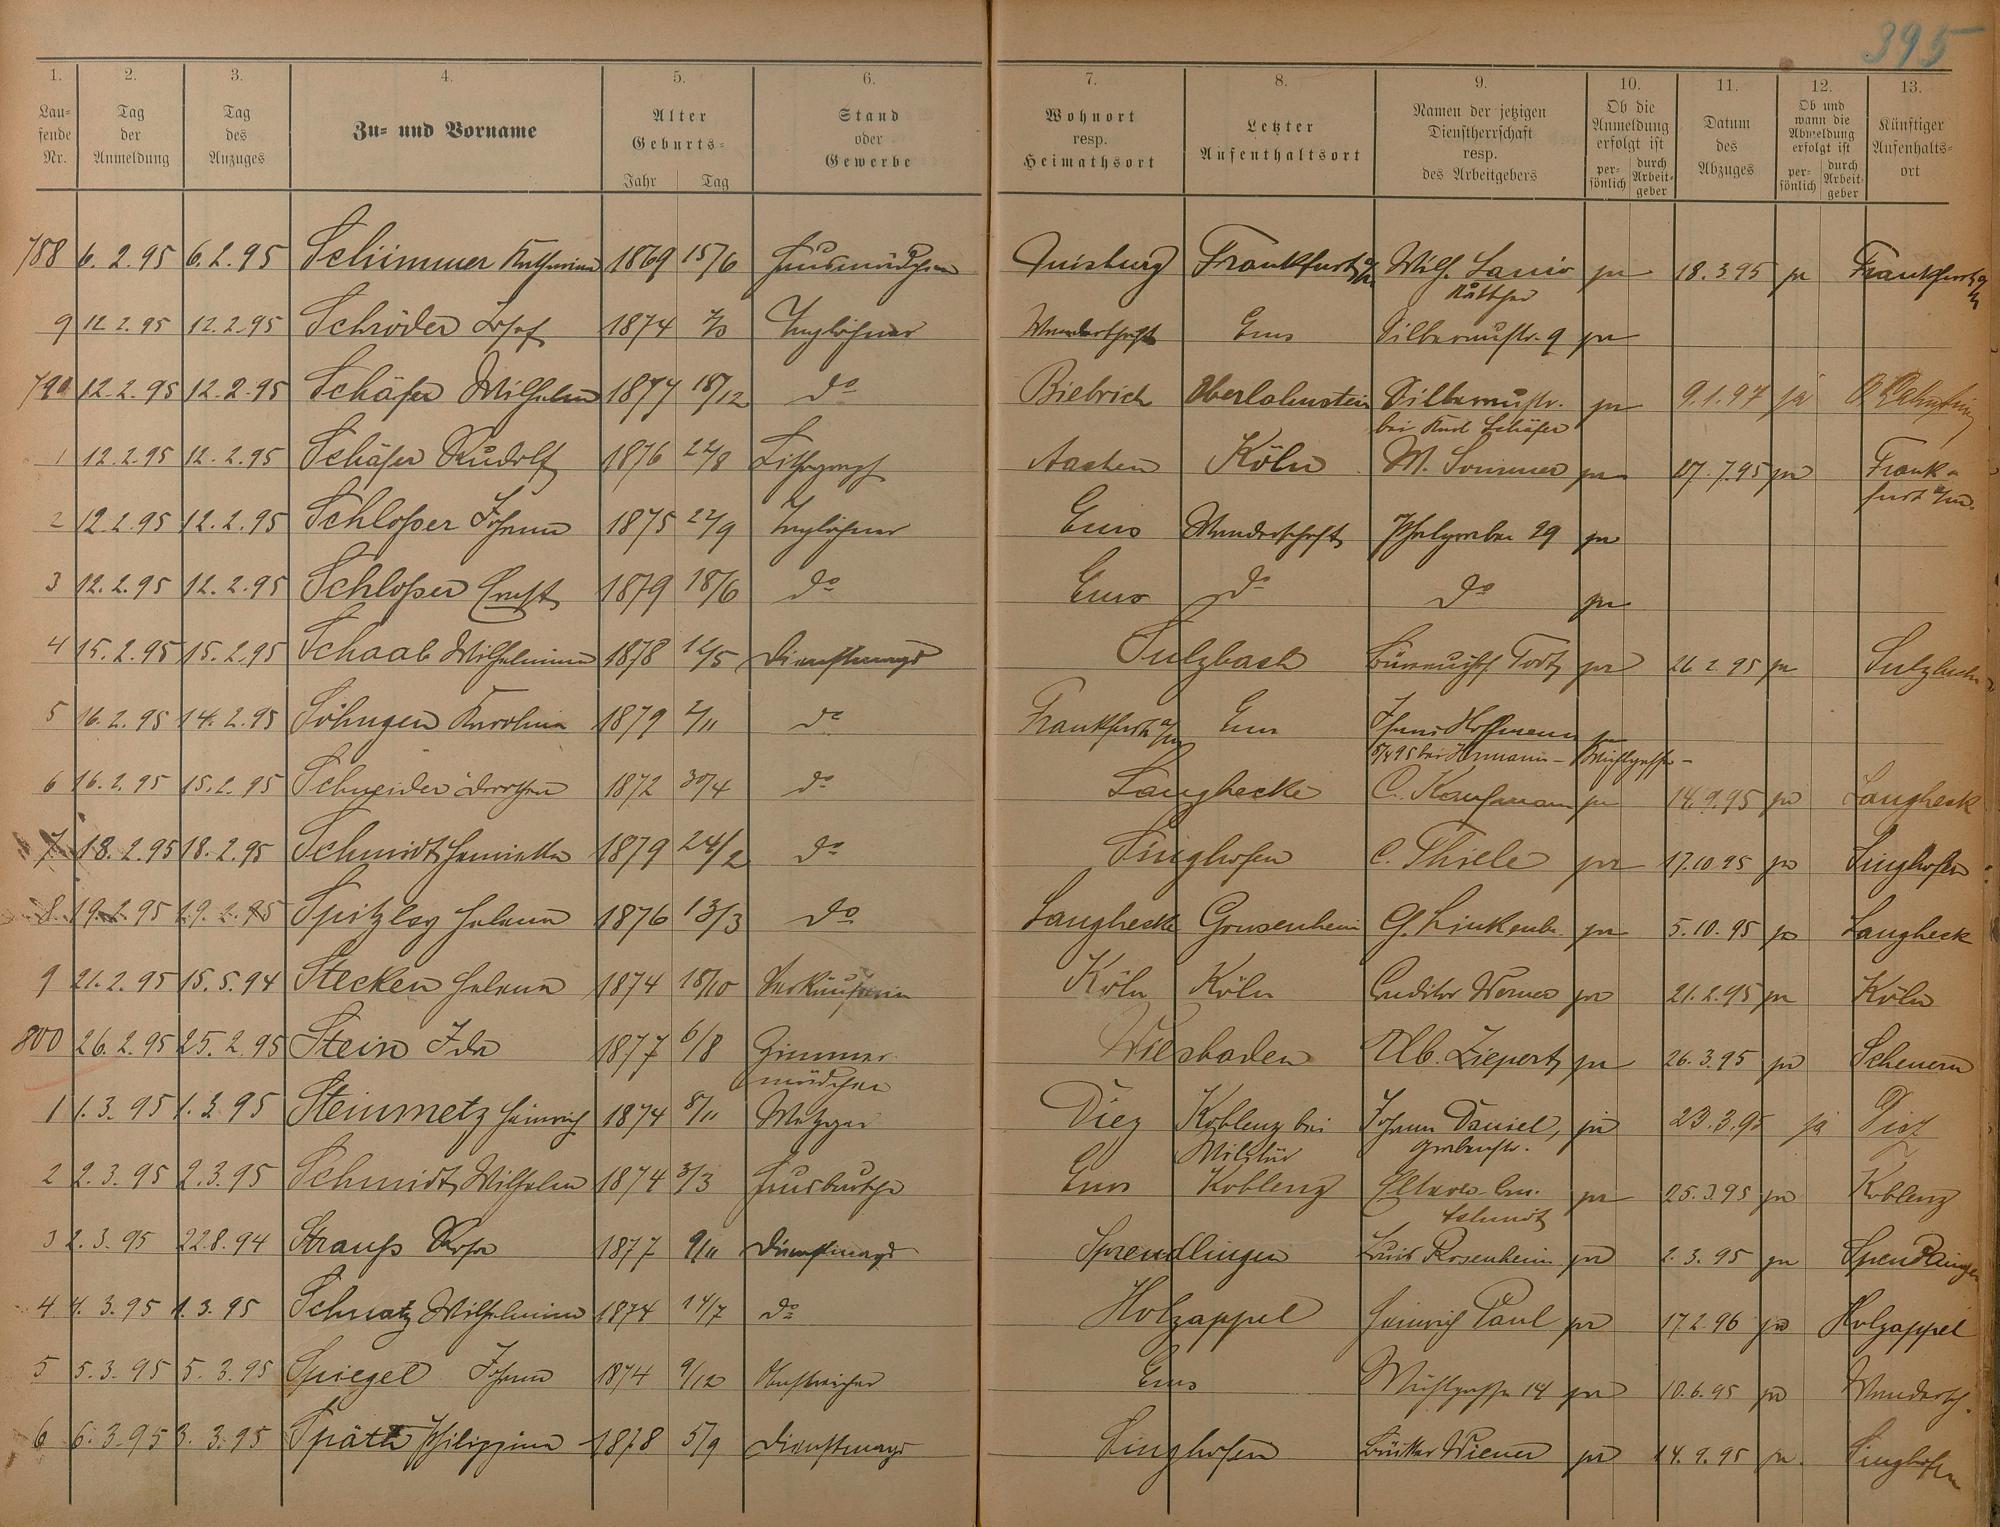 395
1. 2. 3. 4. 5. 6. 7. 8. 9. 10. 11. 12. 13.
Lau-
fende
Nr.
Tag
der
Anmeldung
Tag
des
Anzuges
Zu- und Vorname
Alter
Geburts-
Jahr Tag
Stand
oder
Gewerbe
Wohnort
resp.
Heimathsort
Letzter
Aufenthaltsort
Namen der jetzigen
Dienstherrschaft
resp.
des Arbeitgebers
Ob die
Anmeldung
erfolgt ist
per-
sönlich
durch
Arbeit-
geber
Datum
des
Abzuges
Ob und
wann die
Abmeldung
erfolgt ist
per-
sönlich
durch
Arbeit-
geber
Künftiger
Aufenthalts-
ort
788 6.2.95 6.2.95 Schimmer Katharina 1869 15/6 Hausmädchen Duisburg Frankfurt a/M Wilh. Lanio ja 18.3.95 ja Frankfurt a/M
9 12.2.95 12.2.95 Schröder Josef 1874 Taglöhner Wanderschaft Ems Silberaustr. 9 ja
790 12.2.95 12.2.95 Schäfer Wilhelm 1877 18/12 do Biebrich Oberlahnstein Silberaustr. ja 9.1.97 ja
bei Karl Schäfer
1 12.2.95 12.2.95 Schäfer Rudolf 1876 22/8 Lithograph Aachen Köln M. Sommer ja 27.7.95 ja Frank-
furt a/M.
2 12.2.95 12.2.95 Schloßer Johann 1875 22/9 Taglöhner Ems Wanderschaft Pfahlgraben 29 ja
3 12.2.95 12.2.95 Schloßer Ernst 1879 18/6 do Ems do do ja
4 15.2.95 15.2.95 Schaab Wilhelmine 1878 12/5 Dienstmagd Sulzbach ja 26.2.95 ja Sulzbach
5 16.2.95 14.2.95 Söhngen Karolina 1879 2/11 do Frankfurt a/M Ems Hoffmann ja
bei Hermann - Mühlgasse -
6 16.2.95 15.2.95 Schneider Dorothea 1872 30/4 do Langhecke C. Kaufmann ja 14.9.95 ja Langheck
7 18.2.95 18.2.95 Schmidt Henriette 1879 24/2 do Singhofen C. Thiele ja 17.10.95 ja Singhofen
8 19.2.95 19.2.95 Spitzley Helena 1876 13/3 do Langhecke Gonsenheim G. Linkenb. ja 5.10.95 ja Langheck
9 21.2.95 15.5.94 Stecken Helena 1874 18/10 Verkäuferin Köln Köln Conditor Werner ja 21.2.95 ja Köln
800 26.2.95 25.2.95 Stein Ida 1877 6/8 Zimmer- Wiesbaden Alb. Ziepert ja 26.3.95 ja Scheuern
mädchen
1 1.3.95 1.3.95 Steinmetz Heinrich 1874 8/11 Metzger Diez Koblenz bei Johann Daniel, ja 23.3.95 ja Diez
Militär Grabenstr.
2 2.3.95 2.3.95 Schmidt Wilhelm 1874 3/3 Hausbursche Ems Koblenz ja 25.3.95 ja Koblenz
Schmidt
3 2.3.95 22.8.94 Strauß Rosa 1877 9/11 Dienstmagd Sprendlingen Louis Rosenheim ja 2.3.95 ja Sprendlingen
4 4.3.95 1.3.95 Schnatz Wilhelmine 1874 14/7 do Holzappel Heinrich Paul ja 17.2.96 ja Holzappel
5 5.3.95 5.3.95 Spiegel Johann 1874 9/12 Anstreicher Ems Mühlgasse 14 ja 10.6.95 ja Wandersch.
6 6.3.95 3.3.95 Späth Philippina 1878 5/9 Dienstmagd Singhofen Bäcker Wiener ja 14.9.95 ja. Singhofen